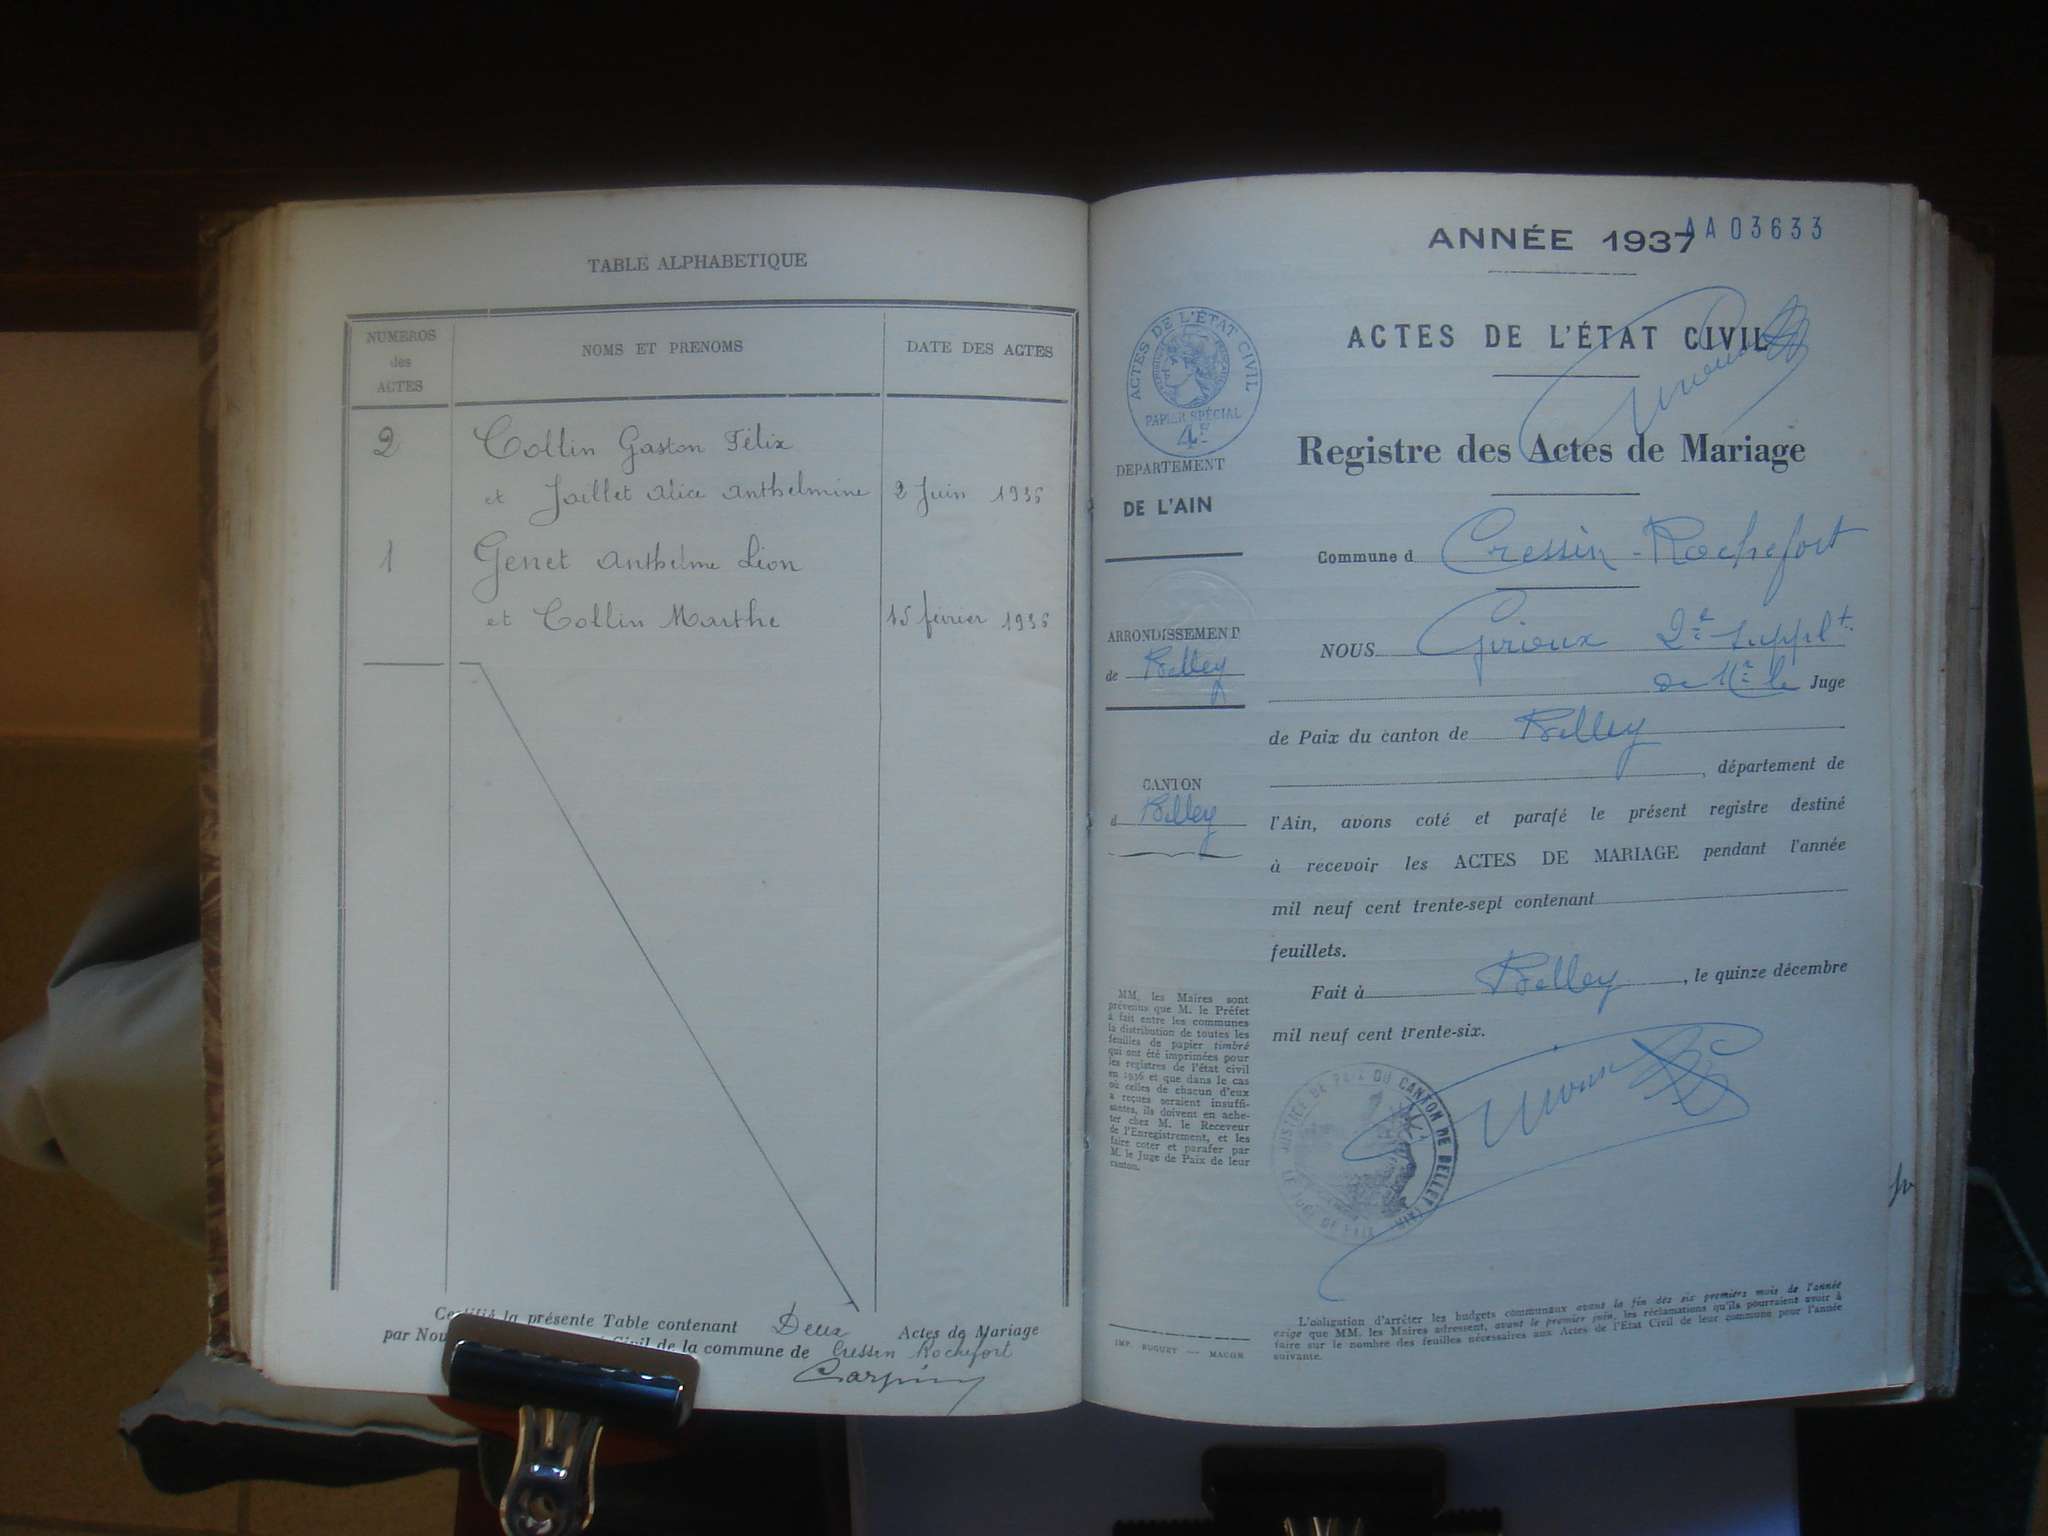 TABLE ALPHABETIQUE
NUMEROS
des
ACTES
NOMS ET PRENOMS
DATE DES ACTES
2 Collin Gaston Félix
et Jaillet Alice Anthelmine 2 Juin 1936
1 Genet Anthelme Léon
et Collin Marthe 15 février 1936
Certifié la présente Table contenant Deux Actes de Mariage
par Nou Civil de la commune de Cressin Rochefort
ANNÉE 1937
AA03633
ACTES DE L'ÉTAT CIVIL
PAPIER SPÉCIAL
4F
ACTES DE L'ÉTAT CIVIL
Registre des Actes de Mariage
DEPARTEMENT
DE L'AIN
Commune d Cressin-Rochefort
ARRONDISSEMENT
de Belley
NOUS Girioux 2e supplt
de Mr le Juge
de Paix du canton de Belley
, département de
CANTON
d Belley
l'Ain, avons coté et parafé le présent registre destiné
à recevoir les ACTES DE MARIAGE pendant l'année
mil neuf cent trente-sept contenant
feuillets.
Fait à Belley, le quinze décembre
mil neuf cent trente-six.
MM. les Maires sont
prévenus que M. le Préfet
a fait entre les communes
la distribution de toutes les
feuilles de papier timbré
qui ont été imprimées pour
les registres de l'état civil
en 1936 et que dans le cas
où celles de chacun d'eux
a reçues seraient insuffi-
santes, ils doivent en ache-
ter chez M. le Receveur
de l'Enregistrement, et les
faire coter et parafer par
M. le Juge de Paix de leur
canton.
JUSTICE DE PAIX DU CANTON DE BELLEY (AIN)
LE JUGE DE PAIX
IMP. BUGUET — MACON
L'obligation d'arrêter les budgets communaux avant la fin des six premiers mois de l'année
exige que MM. les Maires adressent, avant le premier juin, les réclamations qu'ils pourraient avoir à
faire sur le nombre des feuilles nécessaires aux Actes de l'Etat Civil de leur commune pour l'année
suivante.